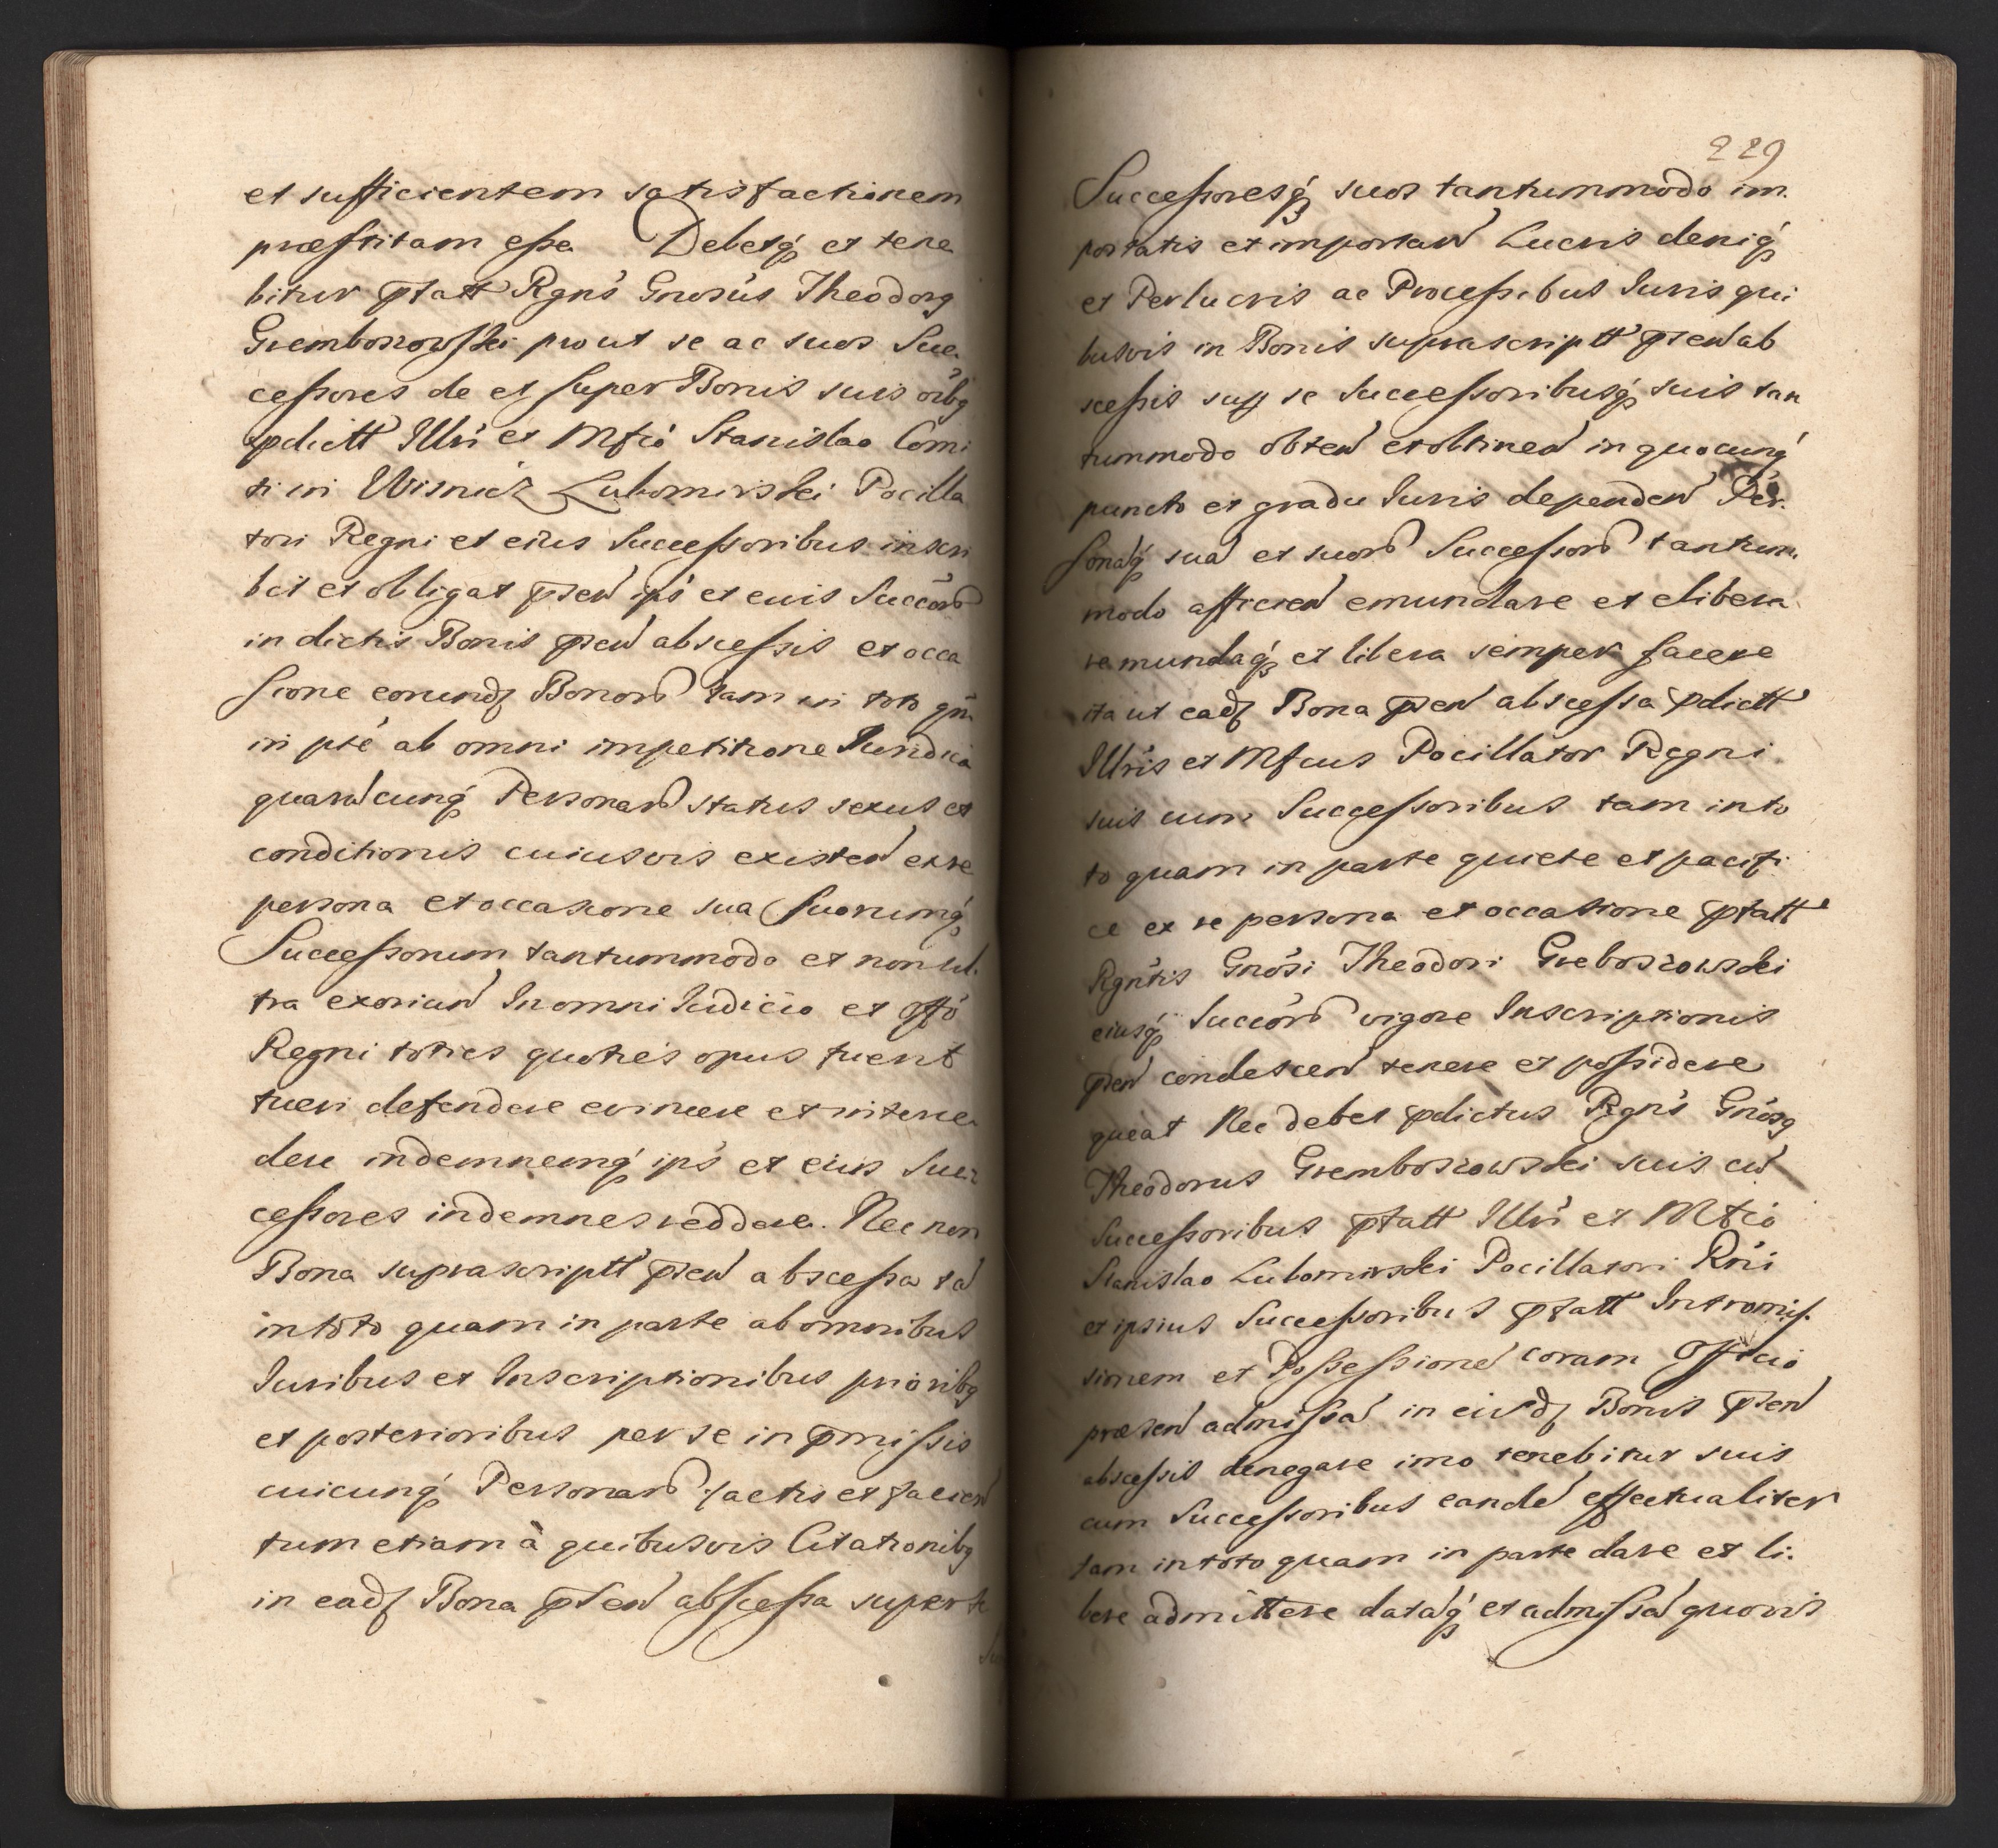 et sufficientem satisfactionem
præstitam esse Debetq́ et tene
bitur ptatt Rgn's Gnosus Theodorg
Gremboszowski prout se ac suos Suc
cessores de et super Bonis suis oibg
pdictt Illri et Mfco Stanislao Comi
ti in Wisnicz Lubomirski Pocilla
tori Regni et eius Successoribus inscri
bit et obligat psen ips et euis Succōr
in dictis Bonis psen abscessis et occa
sione eorund Bonor tam in toto qm
in pte ab omni impetitione Iuridica
quarucunq́ Personar status sexus et
conditionis cuiusvis existen ex re
persona et occasione sua suorumq́
Successorum tantummodo et non ul
tra exorian In omni Iudicio et Offo
Regni toties quoties opus fuerit
tueri defendere evincere et interce
dere indemnemq́ ips et eius Suc
cessores indemnes reddere. Nec non
Bona suprascriptt psen abscessa ta
in toto quam in parte ab omnibus
Iuribus et Inscriptionibus prioribg
et posterioribus per se in pmissis
cuicunq́ Personar factis et facien
tum etiam à quibusvis Citationibg
in ead Bona psen abscessa super se
229
Successoresq́ suos tantummodo im
portatis et importan Lucris deniq́
et Perlucris ac Processibus Iuris qui
busvis in Bonis suprascriptt psen ab
scessis sup se Successoribusq́ suis tan
tummodo obten et obtinen in quocunq́
puncto et gradu Iuris dependen Per
sonaq́ sua et suor Successor tantum
modo afficien emundare et elibera
re mundaq́ et libera semper facere
ita ut ead Bona psen abscessa pdictt
Illris et Mfcus Pocillator Regni
suis cum Successoribus tam in to
to quam in parte quiete et pacifi
ce ex re persona et occasione ptatt
Rgntis Gnosi Theodori Greboszowski
eiusq́ Succōr vigore Inscriptionis
psen condescen tenere et possidere
queat Nec debet pdictus Rgn's Gnosg
Theodorus Gremboszowski suis cu
Successoribus ptatt Illri et Mfco
Stanislao Lubomirski Pocillatori Rni
et ipsius Successoribus ptatt Intromis
sionem et Possessione coram Officio
præsen admissa in eisd Bonis psen
abscessis denegare imo tenebitur suis
cum Successoribus eande effectualiter
tam in toto quam in parte dare et li
bere admittere dataq́ et admissa quovis